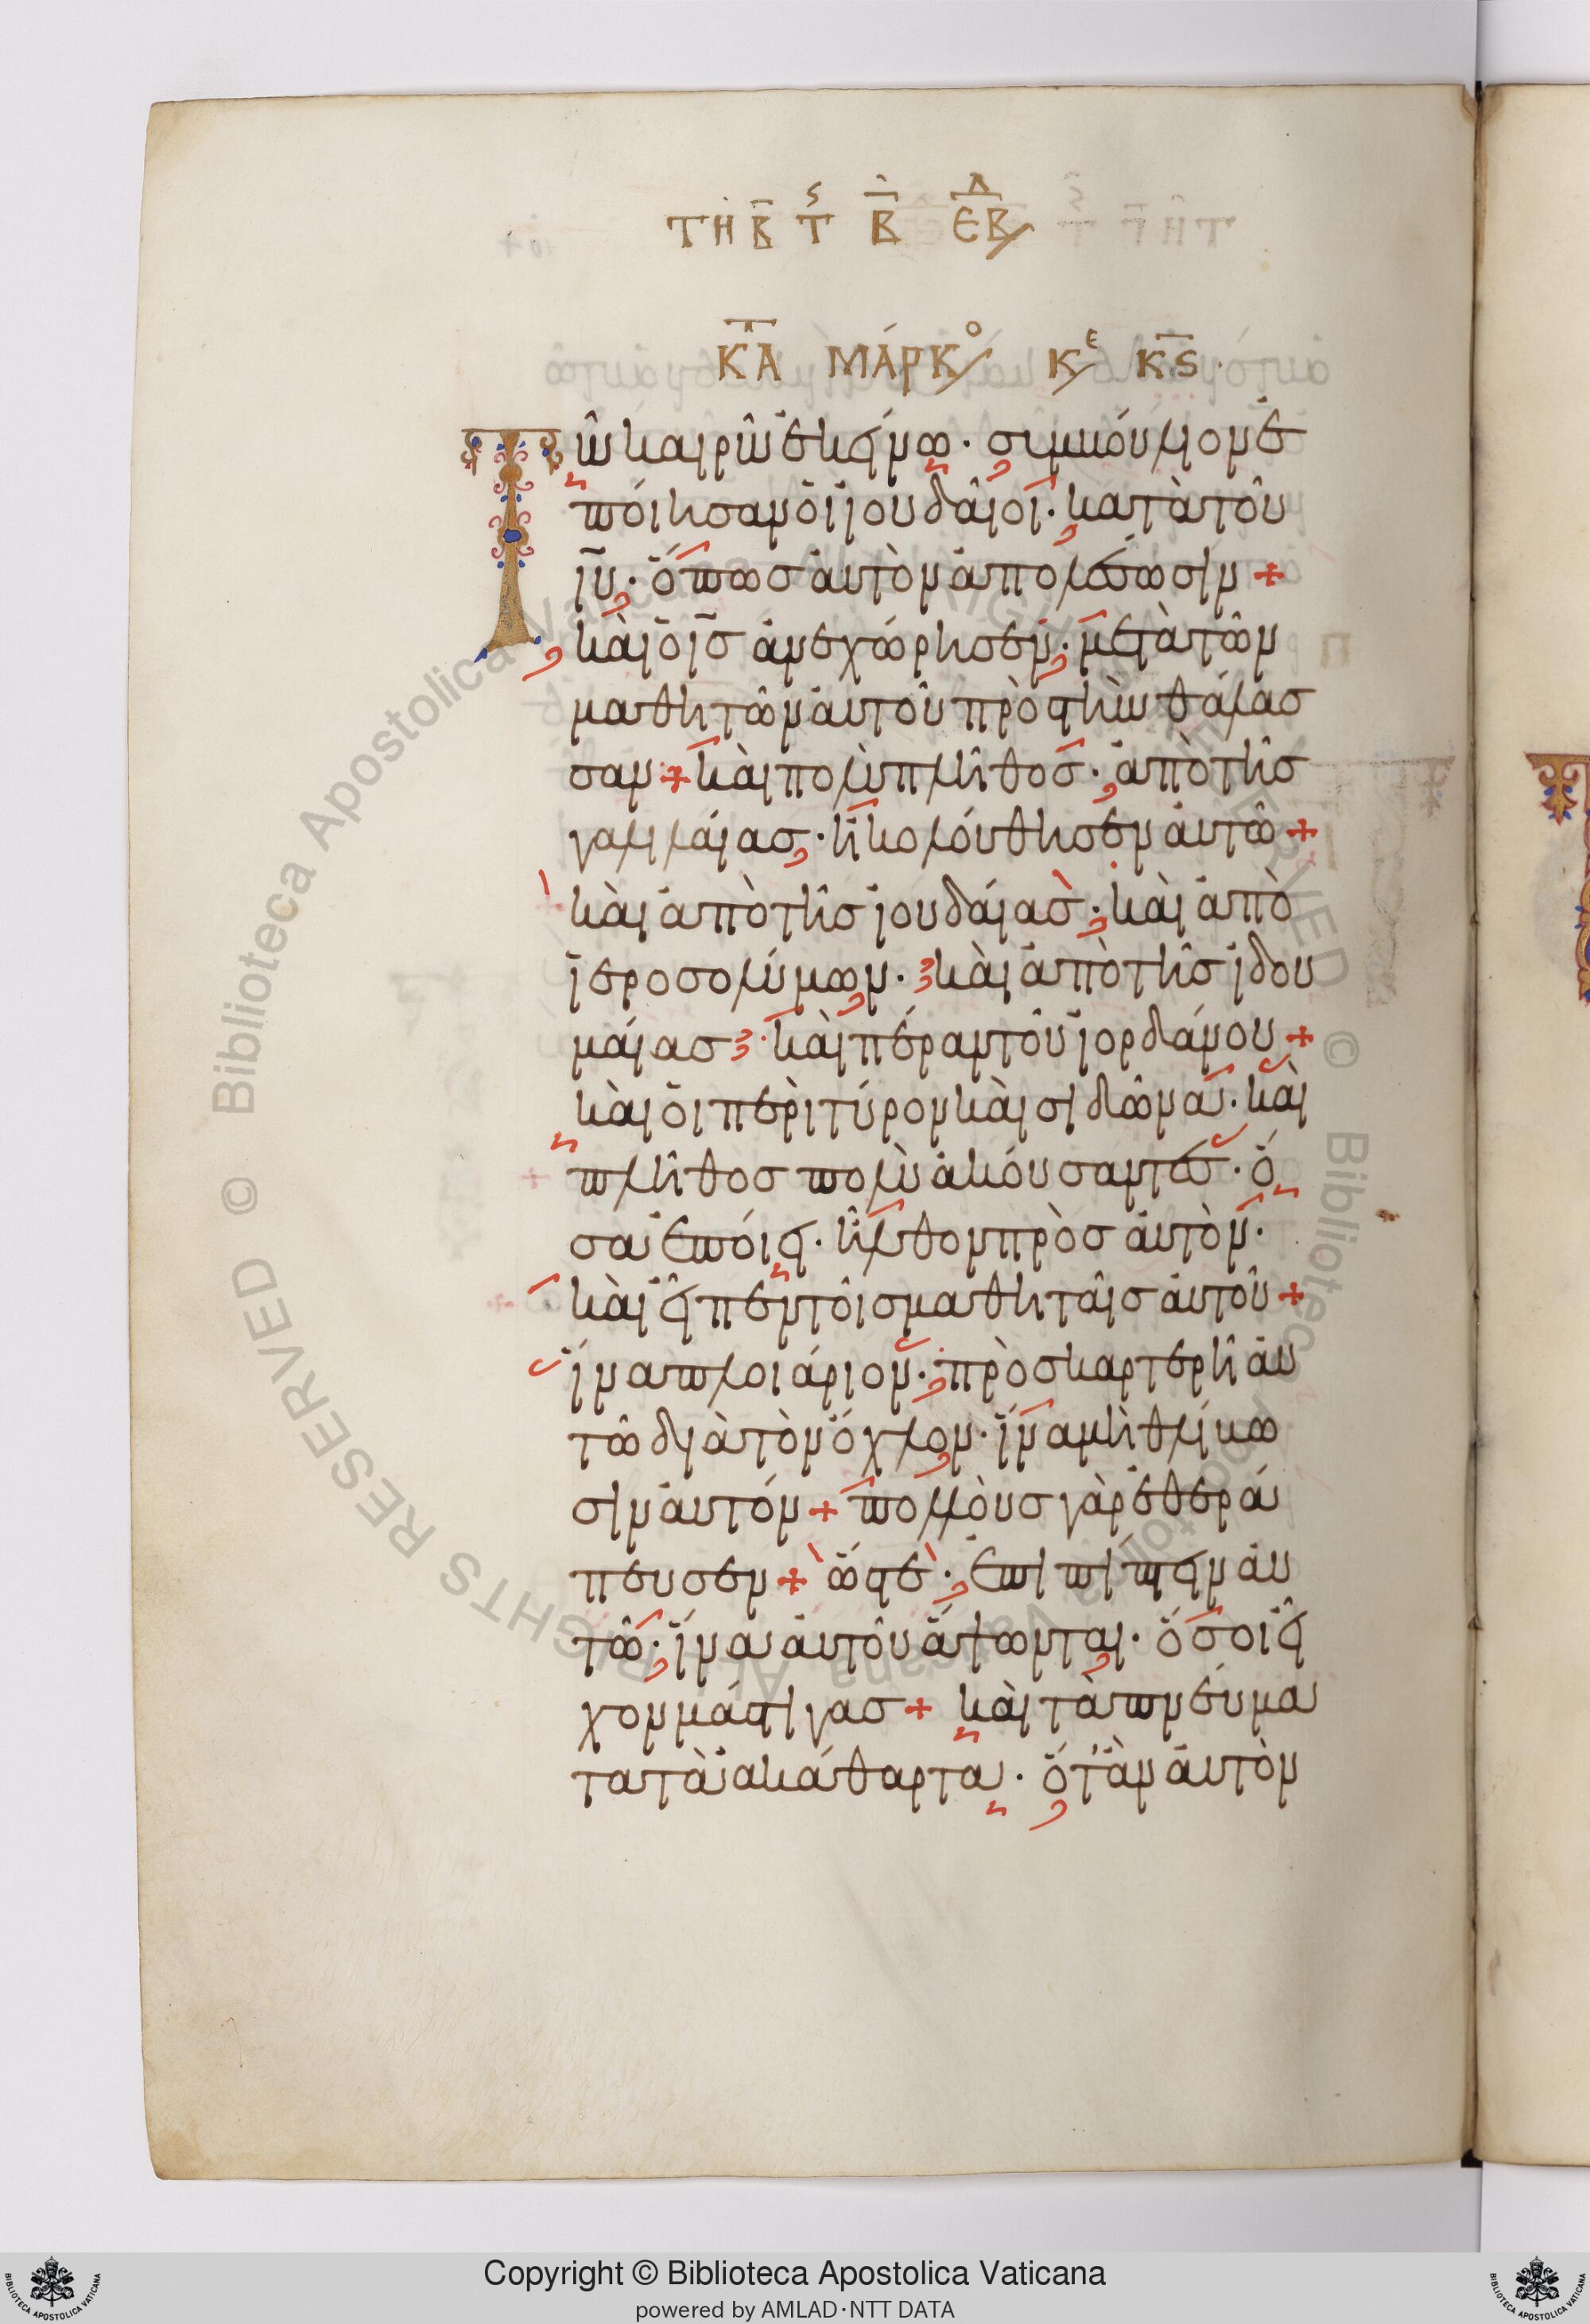 ΤΗ Β̅ Τ̅ς Β̅ Ε̅Β̅Δ
Κ̅Α̅Τ ΜΆΡΚο κε κ̅ς̅
Τῶ καιρῶ ἐκείνω· συμβούλιον ἐ
ποίησαν οἱ ἰουδαῖοι· κατὰ τοῦ
ἰ͞υ· ὅπως αὐτὸν ἀπολέσωσιν +
καὶ ὁ ι͞ς ἀνεχώρησεν· μετὰ τῶν
μαθητῶν αὐτοῦ πρὸς τὴν θάλασ
σαν + καὶ πολὺ πλῆθος· ἀπὸ τῆς
γαλιλαίας· ἠκολούθησεν αὐτῶ +
καὶ ἀπὸ τῆς ἰουδαίας· καὶ ἀπὸ
ἱεροσολύμων· καὶ ἀπὸ τῆς ἰδου
μαίας· καὶ πέραν τοῦ ἰορδάνου +
καὶ οἱ περὶ τύρον καὶ σιδῶνα· καὶ
πλῆθος πολὺ ἀκούσαντες· ὅ
σα ἐποίει· ἦλθον πρὸς αὐτὸν·
καὶ εἶπεν τοῖς μαθηταῖς αὐτοῦ +
ἵνα πλοιάριον· προσκαρτερῆ αὐ
τῶ διὰ τὸν ὄχλον· ἵνα μὴ θλίβω
σιν αὐτόν + πολλοὺς γὰρ ἐθερά
πευσεν + ὥστε· ἐπιπίπτειν αὐ
τῶ· ἵνα αὐτοῦ ἅψωνται· ὅσοι εἶ
χον μάστιγας + καὶ τὰ πνεύμα
τα τὰ ἀκάθαρτα· ὅταν αὐτὸν
Copyright © Biblioteca Apostolica Vaticana
powered by AMLAD·NTT DATA